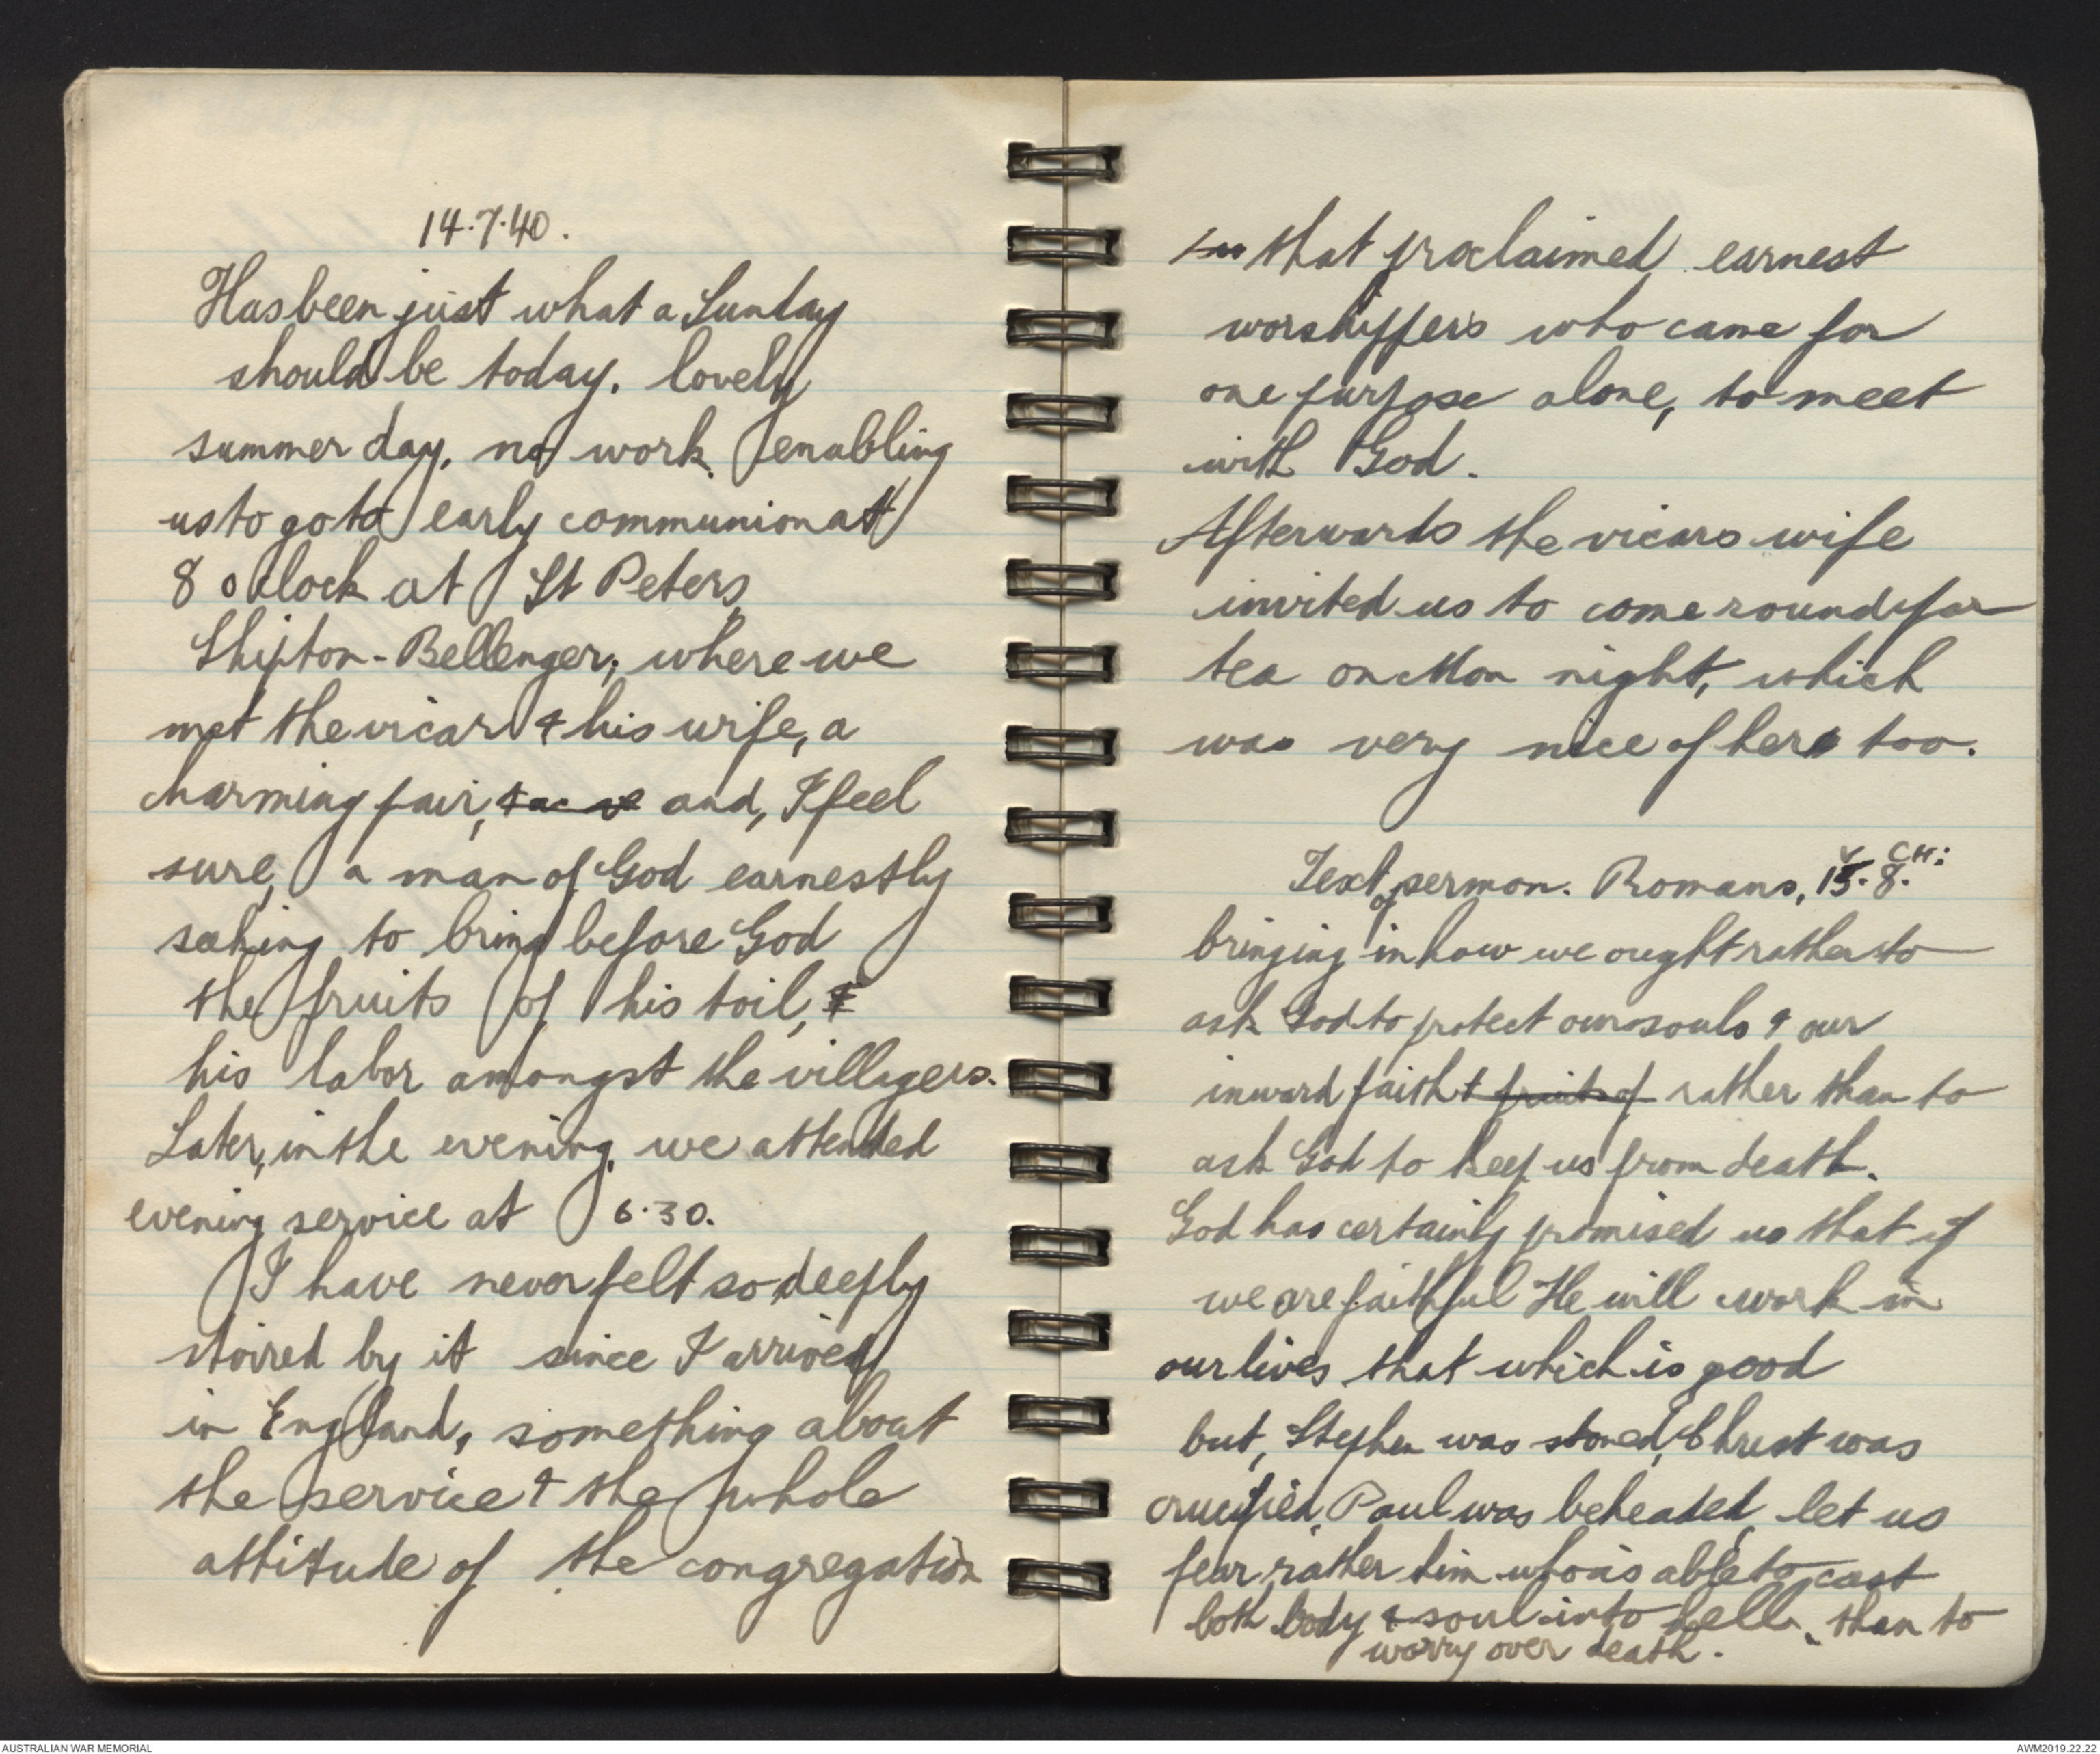 14.7.40.
Has been just what a Sunday
should be today. lovely
summer day, no work enabling
us to go to early communion at
8 oclock at St Peters,
Shipton-Bellenger, where we
met the vicar & his wife, a
charming pair, and, I feel
sure, a man of God earnestly
seeking to bring before God
the fruits of his toil, &
his labor amongst the villagers.
Later, in the evening, we attended
evening service at 6.30.
I have never felt so deeply
stirred by it since I arrived
in England, something about
the service & the whole
attitude of the congregation
that proclaimed earnest
worshippers who came for
one purpose alone, to meet
with God.
Afterwards the vicars wife
invited us to come round for
tea on Mon night, which
was very nice of her too.
Text of sermon. Romans, 15. 8.
v CH:
bringing in how we ought rather to
ask God to protect our souls & our
inward faith & fruits of rather than to
ask God to keep us from death.
God has certainly promised us that if
we are faithful He will work in
our lives that which is good
but, Stephen was stoned, Christ was
crucified, Paul was beheaded, let us
fear rather him who is able to cast
both body & soul into hell, than to
worry over death.
AUSTRALIAN WAR MEMORIAL
AWM2019.22.22